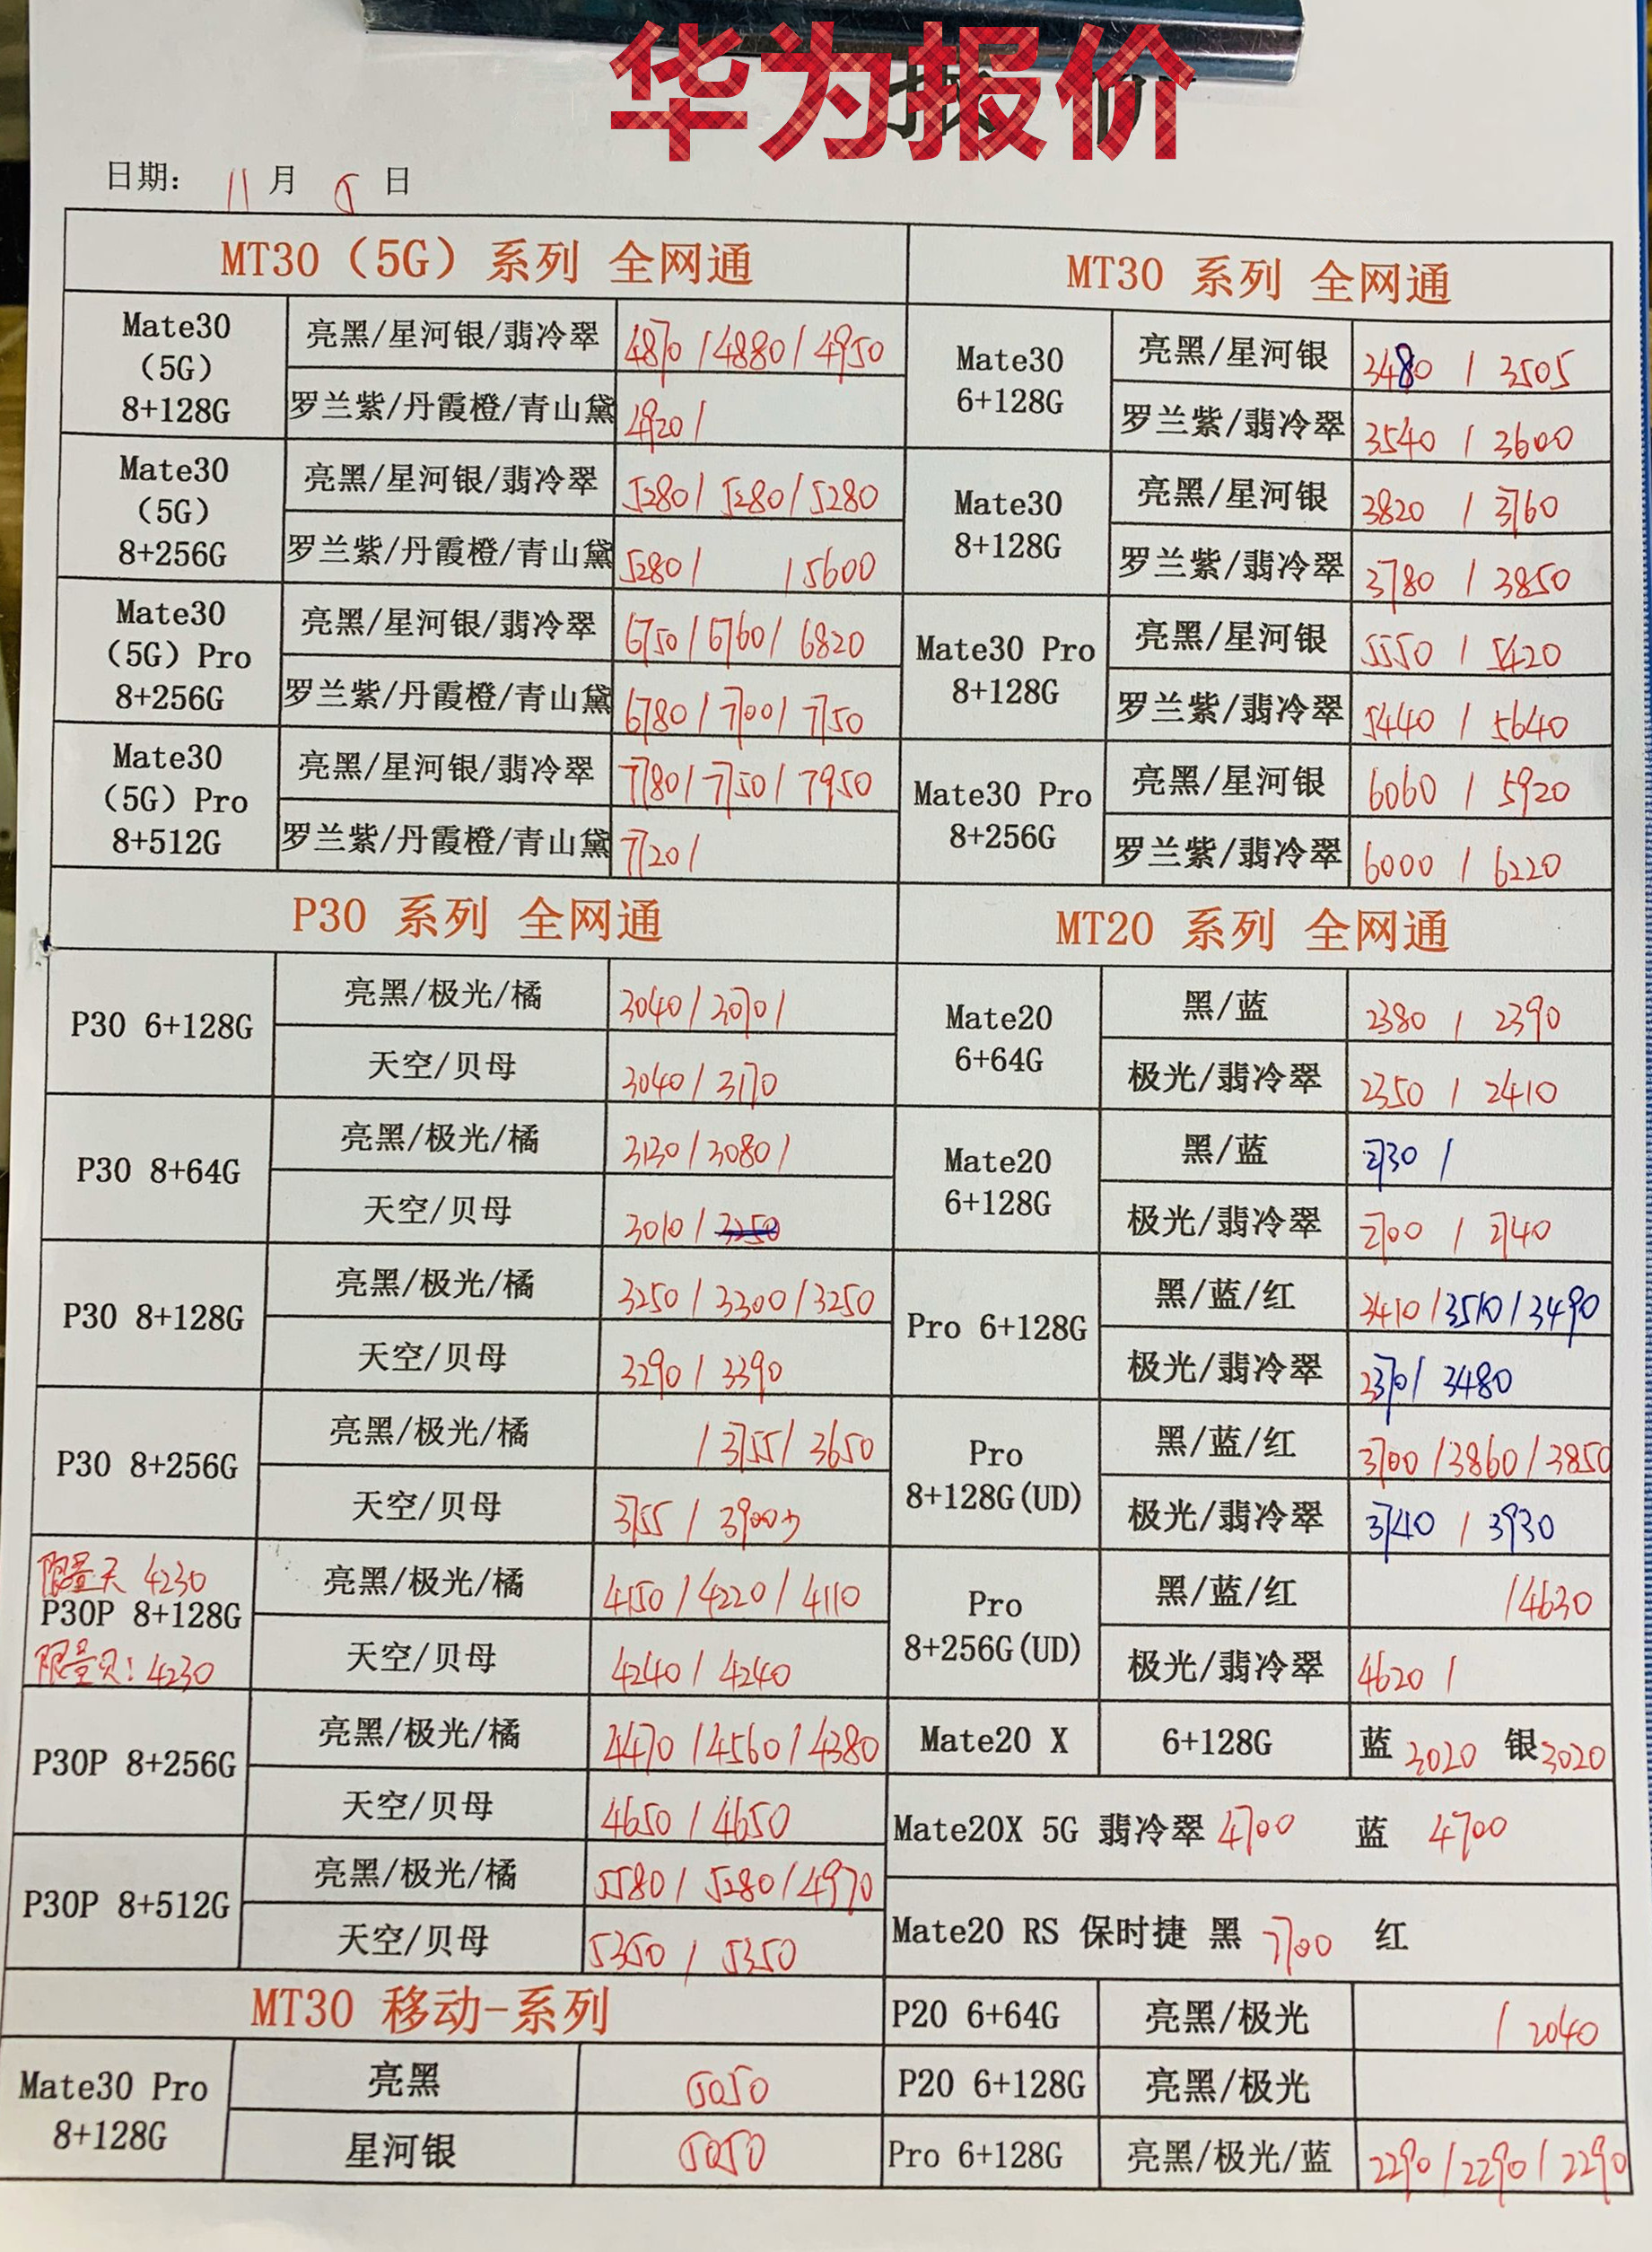 华为报价
日期： 11 月 5 日
MT30（5G）系列 全网通
Mate30
（5G）
8+128G
亮黑/星河银/翡冷翠 4870 / 4880 / 4950
罗兰紫/丹霞橙/青山黛 4920 /
Mate30
（5G）
8+256G
亮黑/星河银/翡冷翠 5280 / 5280 / 5280
罗兰紫/丹霞橙/青山黛 5280 / / 5600
Mate30
（5G）Pro
8+256G
亮黑/星河银/翡冷翠 6750 / 6760 / 6820
罗兰紫/丹霞橙/青山黛 6780 / 7100 / 7150
Mate30
（5G）Pro
8+512G
亮黑/星河银/翡冷翠 7780 / 7750 / 7950
罗兰紫/丹霞橙/青山黛 7720 /
MT30 系列 全网通
Mate30
6+128G
亮黑/星河银 3480 / 3505
罗兰紫/翡冷翠 3540 / 3600
Mate30
8+128G
亮黑/星河银 3820 / 3760
罗兰紫/翡冷翠 3780 / 3850
Mate30 Pro
8+128G
亮黑/星河银 5550 / 5420
罗兰紫/翡冷翠 5440 / 5640
Mate30 Pro
8+256G
亮黑/星河银 6060 / 5920
罗兰紫/翡冷翠 6000 / 6220
P30 系列 全网通
P30 6+128G
亮黑/极光/橘 3040 / 3070 /
天空/贝母 3040 / 3170
P30 8+64G
亮黑/极光/橘 3130 / 3080 /
天空/贝母 3010 / 3250
P30 8+128G
亮黑/极光/橘 3250 / 3300 / 3250
天空/贝母 3290 / 3390
P30 8+256G
亮黑/极光/橘 / 3755 / 3650
天空/贝母 3755 / 3900少
限量天 4230
P30P 8+128G
限量贝：4230
亮黑/极光/橘 4150 / 4220 / 4110
天空/贝母 4240 / 4240
P30P 8+256G
亮黑/极光/橘 4470 / 4560 / 4380
天空/贝母 4650 / 4650
P30P 8+512G
亮黑/极光/橘 5580 / 5280 / 4970
天空/贝母 5350 / 5350
MT30 移动-系列
Mate30 Pro
8+128G
亮黑 5050
星河银 5050
MT20 系列 全网通
Mate20
6+64G
黑/蓝 2380 / 2390
极光/翡冷翠 2350 / 2410
Mate20
6+128G
黑/蓝 2730 /
极光/翡冷翠 2700 / 2740
Pro 6+128G
黑/蓝/红 3410 / 3510 / 3490
极光/翡冷翠 3370 / 3480
Pro
8+128G(UD)
黑/蓝/红 3700 / 3860 / 3850
极光/翡冷翠 3740 / 3930
Pro
8+256G(UD)
黑/蓝/红 / 4630
极光/翡冷翠 4620 /
Mate20 X 6+128G 蓝 3020 银 3020
Mate20X 5G 翡冷翠 4700 蓝 4700
Mate20 RS 保时捷 黑 7700 红
P20 6+64G 亮黑/极光 / 2040
P20 6+128G 亮黑/极光
Pro 6+128G 亮黑/极光/蓝 2290 / 2290 / 2290